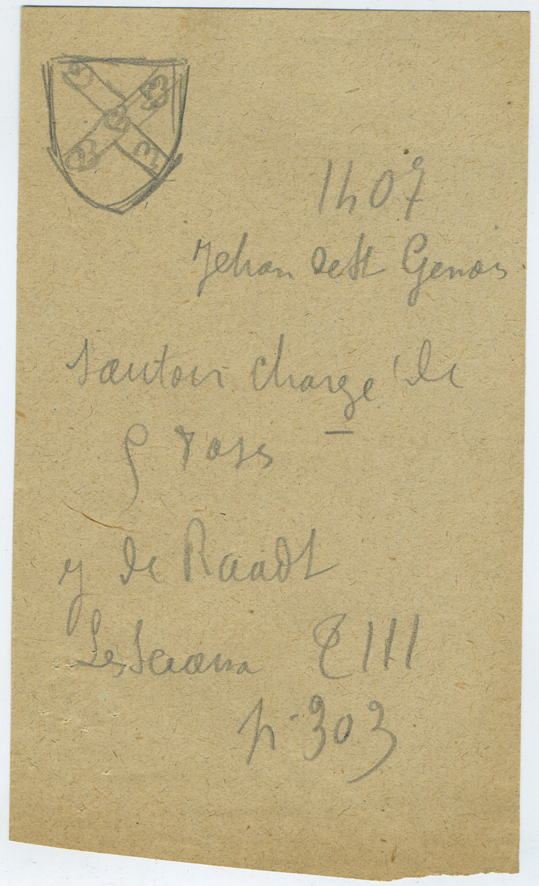 1407
Jehan de St Genois
Sautoir chargé de
5 roses
J de Raadt
Les Sceaux T III
p. 303